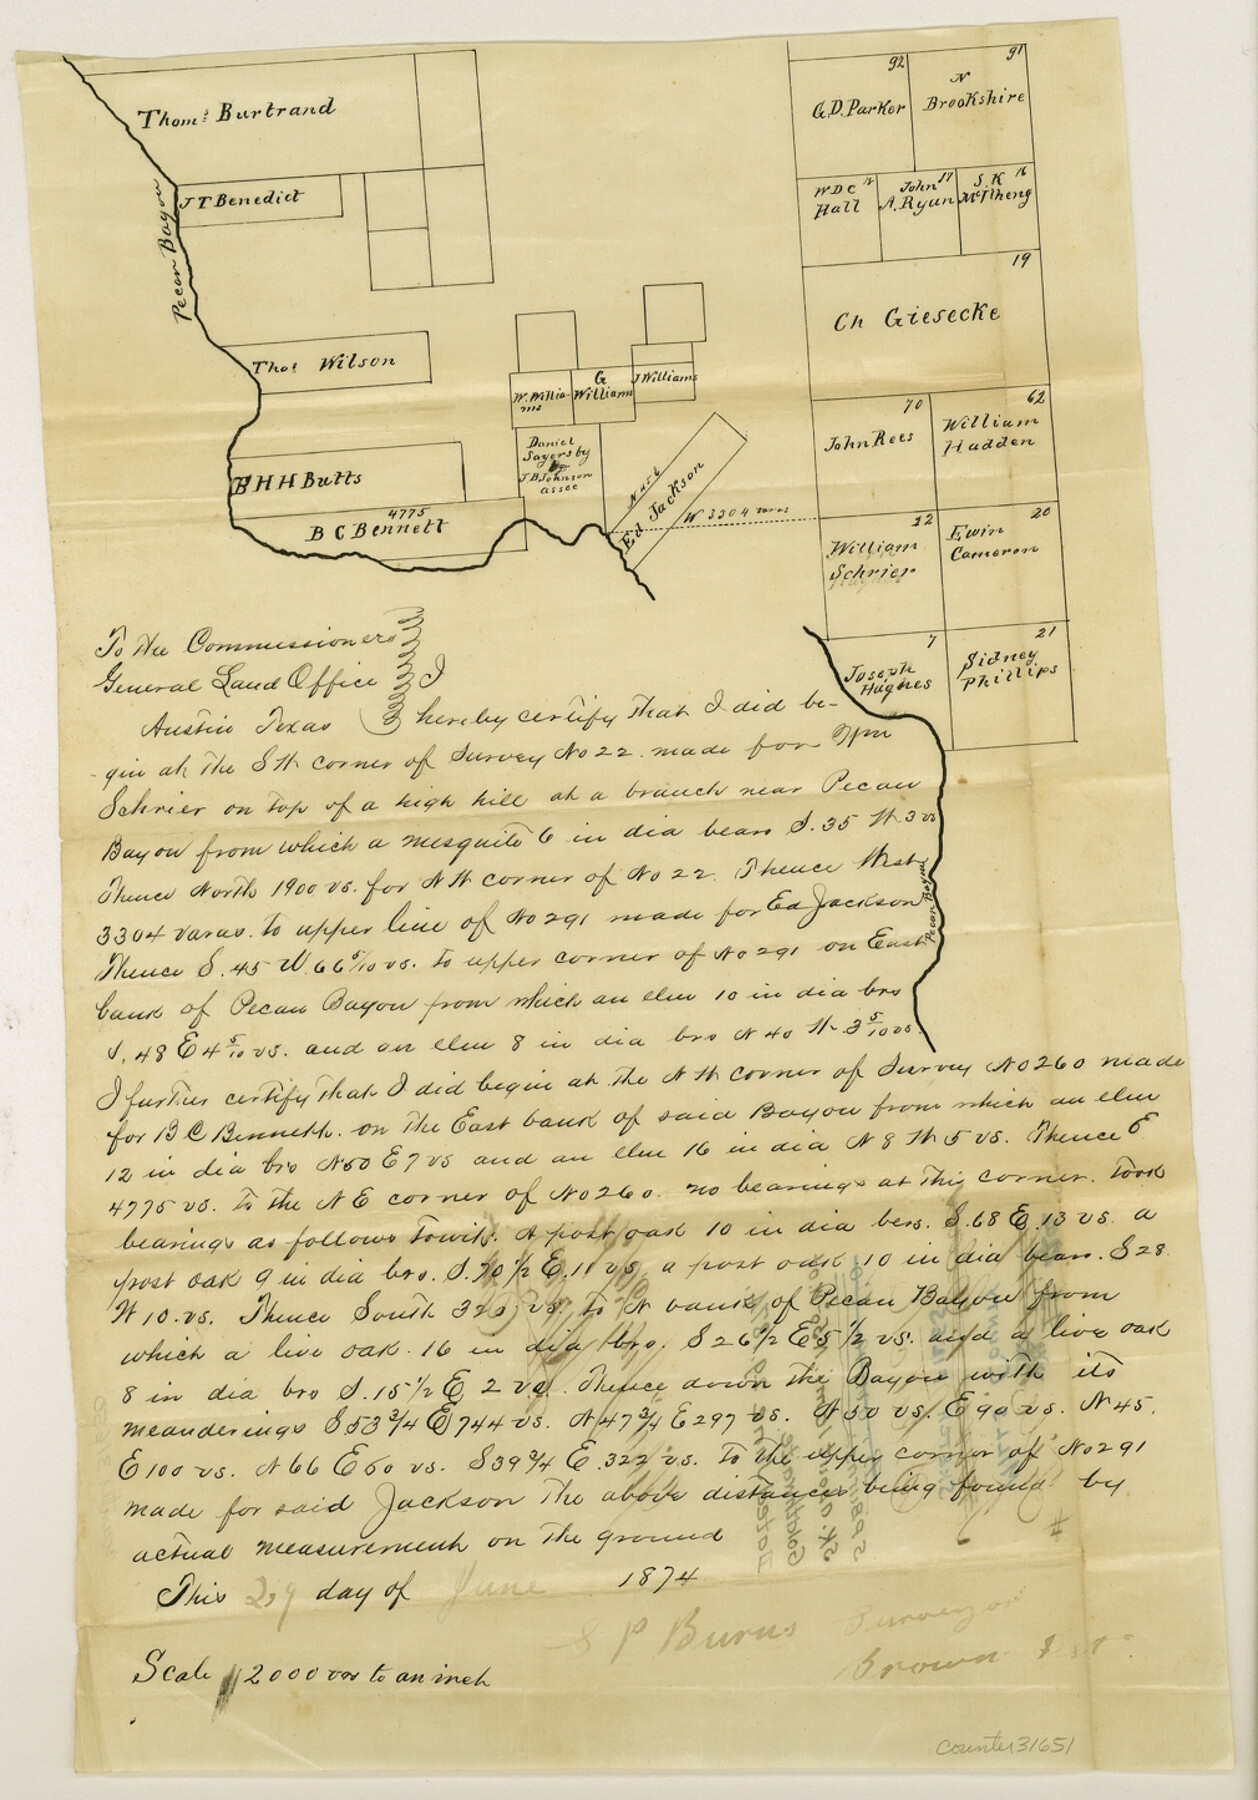 Thom.s Burtrand
J T Benedict
Pecan Bayou
Tho.s Wilson
B H H Butts
4775
B C Bennett
W. Willia-
ms
G
Williams
J Williams
Daniel
Sayers by
J.B. Johnson
assee
N 45 E
Ed Jackson
W 3304 varas
92
G.D. Parker
91
N
Brookshire
W D C 18
Hall
John 17
A. Ryan
S. K 16
McIlheng
19
Ch Giesecke
70
John Rees
62
William
Hadden
22
William
Schrier
20
Ewin
Cameron
7
Joseph
Hughes
21
Sidney
Phillips
Pecan Bayou
To the Commissioner
General Land Office I
Austin Texas hereby certify that I did be-
gin at the S W corner of Survey No 22. made for Wm
Schrier on top of a high hill at a branch near Pecan
Bayou from which a mesquite 6 in dia bears S. 35 W. 3 vs
Thence North 1900 vs. for N W corner of No 22. Thence West
3304 varas. to upper line of No 291 made for Ed Jackson
Thence S. 45 W. 66 5/10 vs. to upper corner of No 291 on East
bank of Pecan Bayou from which an elm 10 in dia brs
S. 48 E 4 5/10 vs. and an elm 8 in dia brs N 40 W 3 5/10 vs.
I further certify that I did begin at the N W corner of Survey No 260 made
for B C Bennett. on the East bank of said Bayou from which an elm
12 in dia brs N 50 E 7 vs and an elm 16 in dia N 8 W 5 vs. Thence E
4775 vs. to the N E corner of No 260. no bearings at this corner. Took
bearings as follows Towit. A post oak 10 in dia bers. S. 68 E. 13 vs. a
post oak 9 in dia brs. S. 70 1/2 E. 11 vs, a post oak 10 in dia bears. S 28.
W 10. vs. Thence South 320 vs. to N bank of Pecan Bayou from
which a live oak. 16 in dia brs. S 26 1/2 E 5 1/2 vs. and a live oak
8 in dia brs S. 15 1/2 E 2 vs. Thence down the Bayou with its
meanderings S 53 3/4 E 744 vs. N 47 3/4 E 297 vs. N 50 vs. E 90 vs. N 45.
E 100 vs. N 66 E 60 vs. S 39 3/4 E. 322 vs. to the upper corner of No 291
made for said Jackson the above distances being found by
actual measurement on the ground
This 29 day of June 1874
S P Burns Surveyor
Brown Dist.
Scale 2000 vrs to an inch
counter 31651